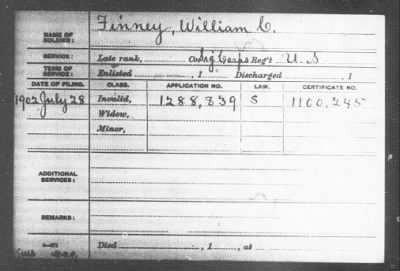 NAME OF SOLDIER: Finney, William C.
SERVICE: Late rank, Co. Sig Corps Reg't U.S
TERM OF SERVICE: Enlisted , 1 Discharged , 1
DATE OF FILING. CLASS. APPLICATION NO. LAW. CERTIFICATE NO.
1902 July 28 Invalid, 1288,839 S 1100,245
Widow,
Minor,
ADDITIONAL SERVICES:
REMARKS:
Died , 1 , at